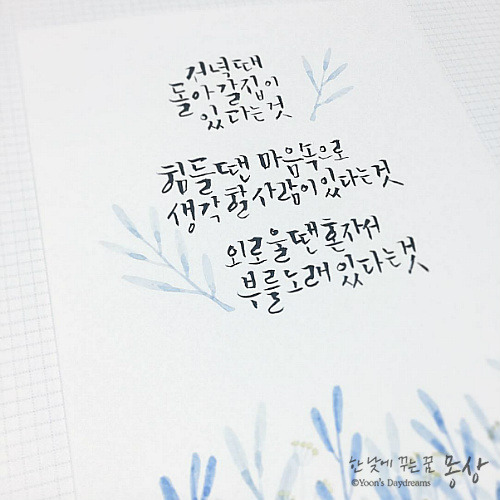 저녁때
돌아갈집이
있다는것
힘들땐 마음속으로
생각할 사람이있다는것
외로울땐 혼자서
부를노래 있다는것
한낮에 꾸는 꿈 몽상
©Yoon's Daydreams